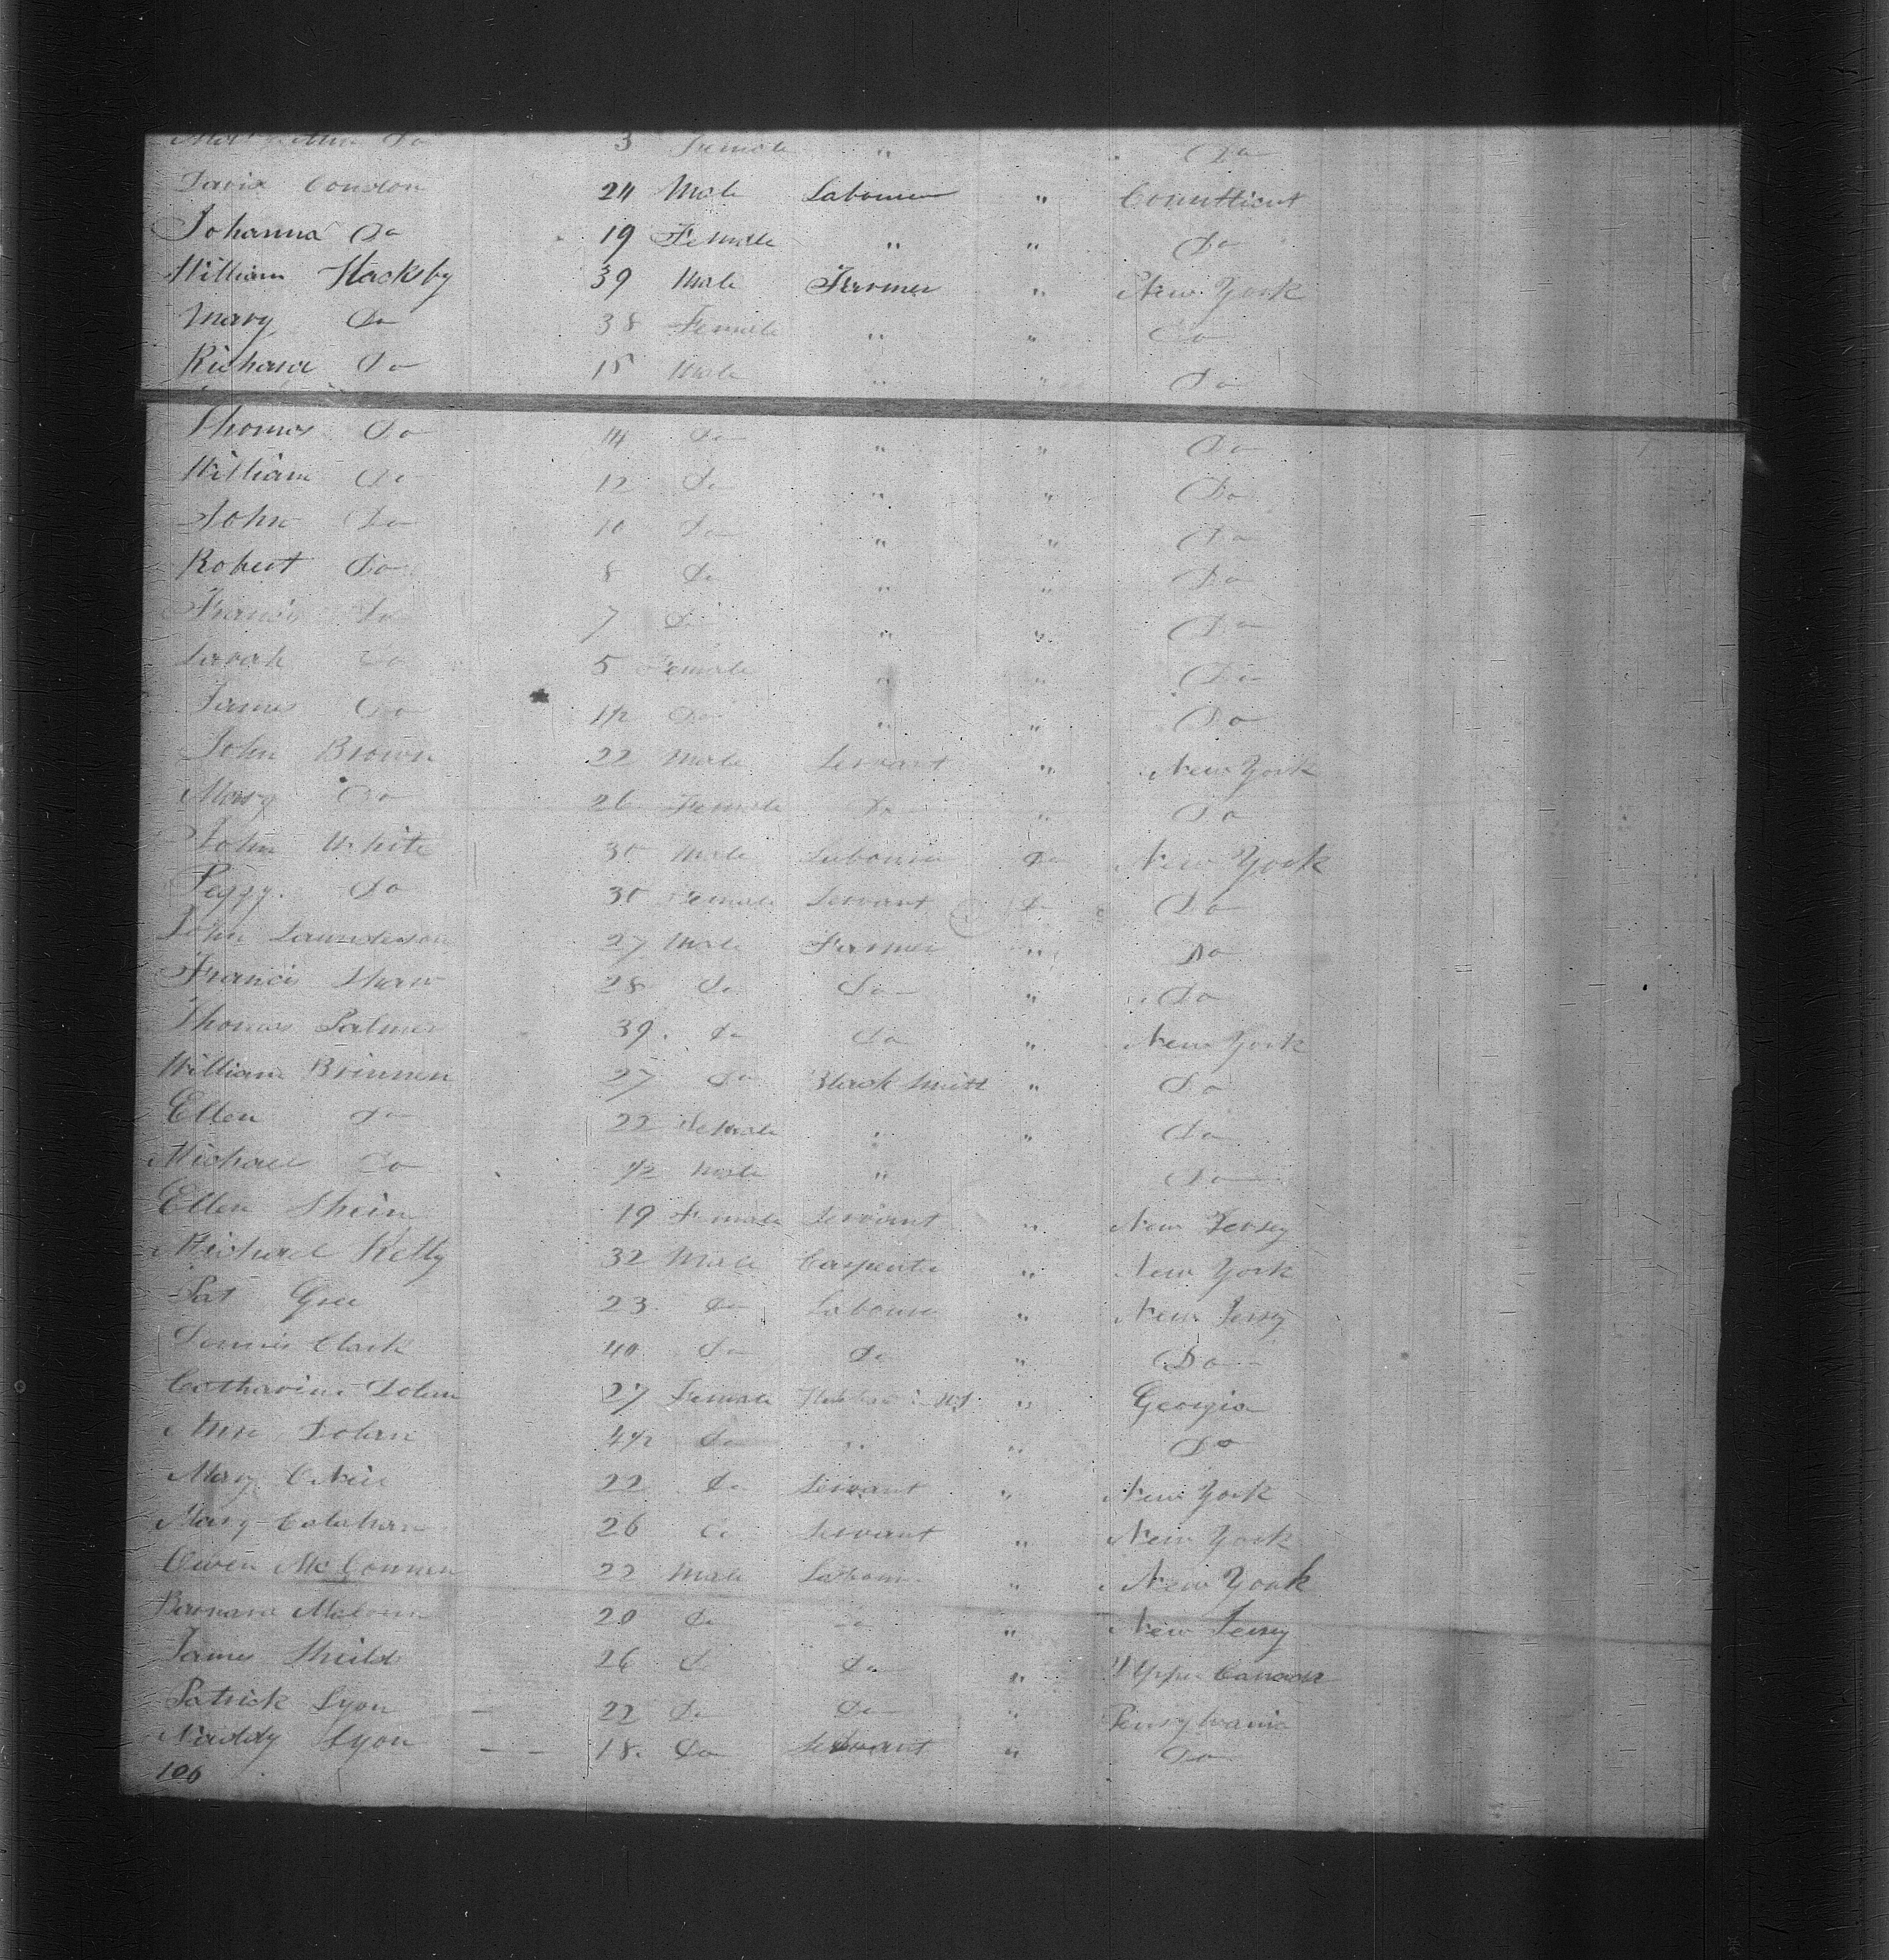 Ann Do 3 Female " Do
David Condon 24 Male Labourer " Conutticut
Johanna Do 19 Female " " Do
William Hacksby 39 Male Farmer " New York
Mary Do 38 Female " " Do
Richard Do 15 Male " " Do
Thomas Do 14 Do " " Do
William Do 12 Do " " Do
John Do 10 Do " " Do
Robert Do 8 Do " " Do
Francis Do 7 Do " " Do
Sarah Do 5 Female " " Do
James Do 1/2 Do " " Do
John Brown 22 Male Servant " New York
Mary Do 26 Female Do " Do
John White 30 Male Labourer Do New York
Peggy Do 30 Female Servant Do Do
John Saunderson 27 Male Farmer " Do
Francis Shaw 28 Do Do " Do
Thomas Palmer 39 Do Do " New York
William Brinnen 27 Do Black Smith " Do
Ellen Do 22 Female " " Do
Michael Do 1/2 Male " Do
Ellen Shein 19 Female Servant " New Jersey
Michael Kelly 32 Male Carpenter " New York
Pat Gree 23 Do Labourer " New Jersey
Dennis Clark 40 Do Do " Do
Catharine Dolan 27 Female " Georgia
Ann Dolan 4 1/2 Do " " Do
Mary O Neil 22 Do Servant " New York
Mary Calahan 26 Do Servant " New York
Owen McConnen 22 Male Labourer " New York
Barnard Malown 20 Do Do " New Jersey
James Shields 26 Do Do " Upper Canada
Patrick Lyon 22 Do Do " Pensylvania
Naddy Lyon 18 Do Servant " Do
106